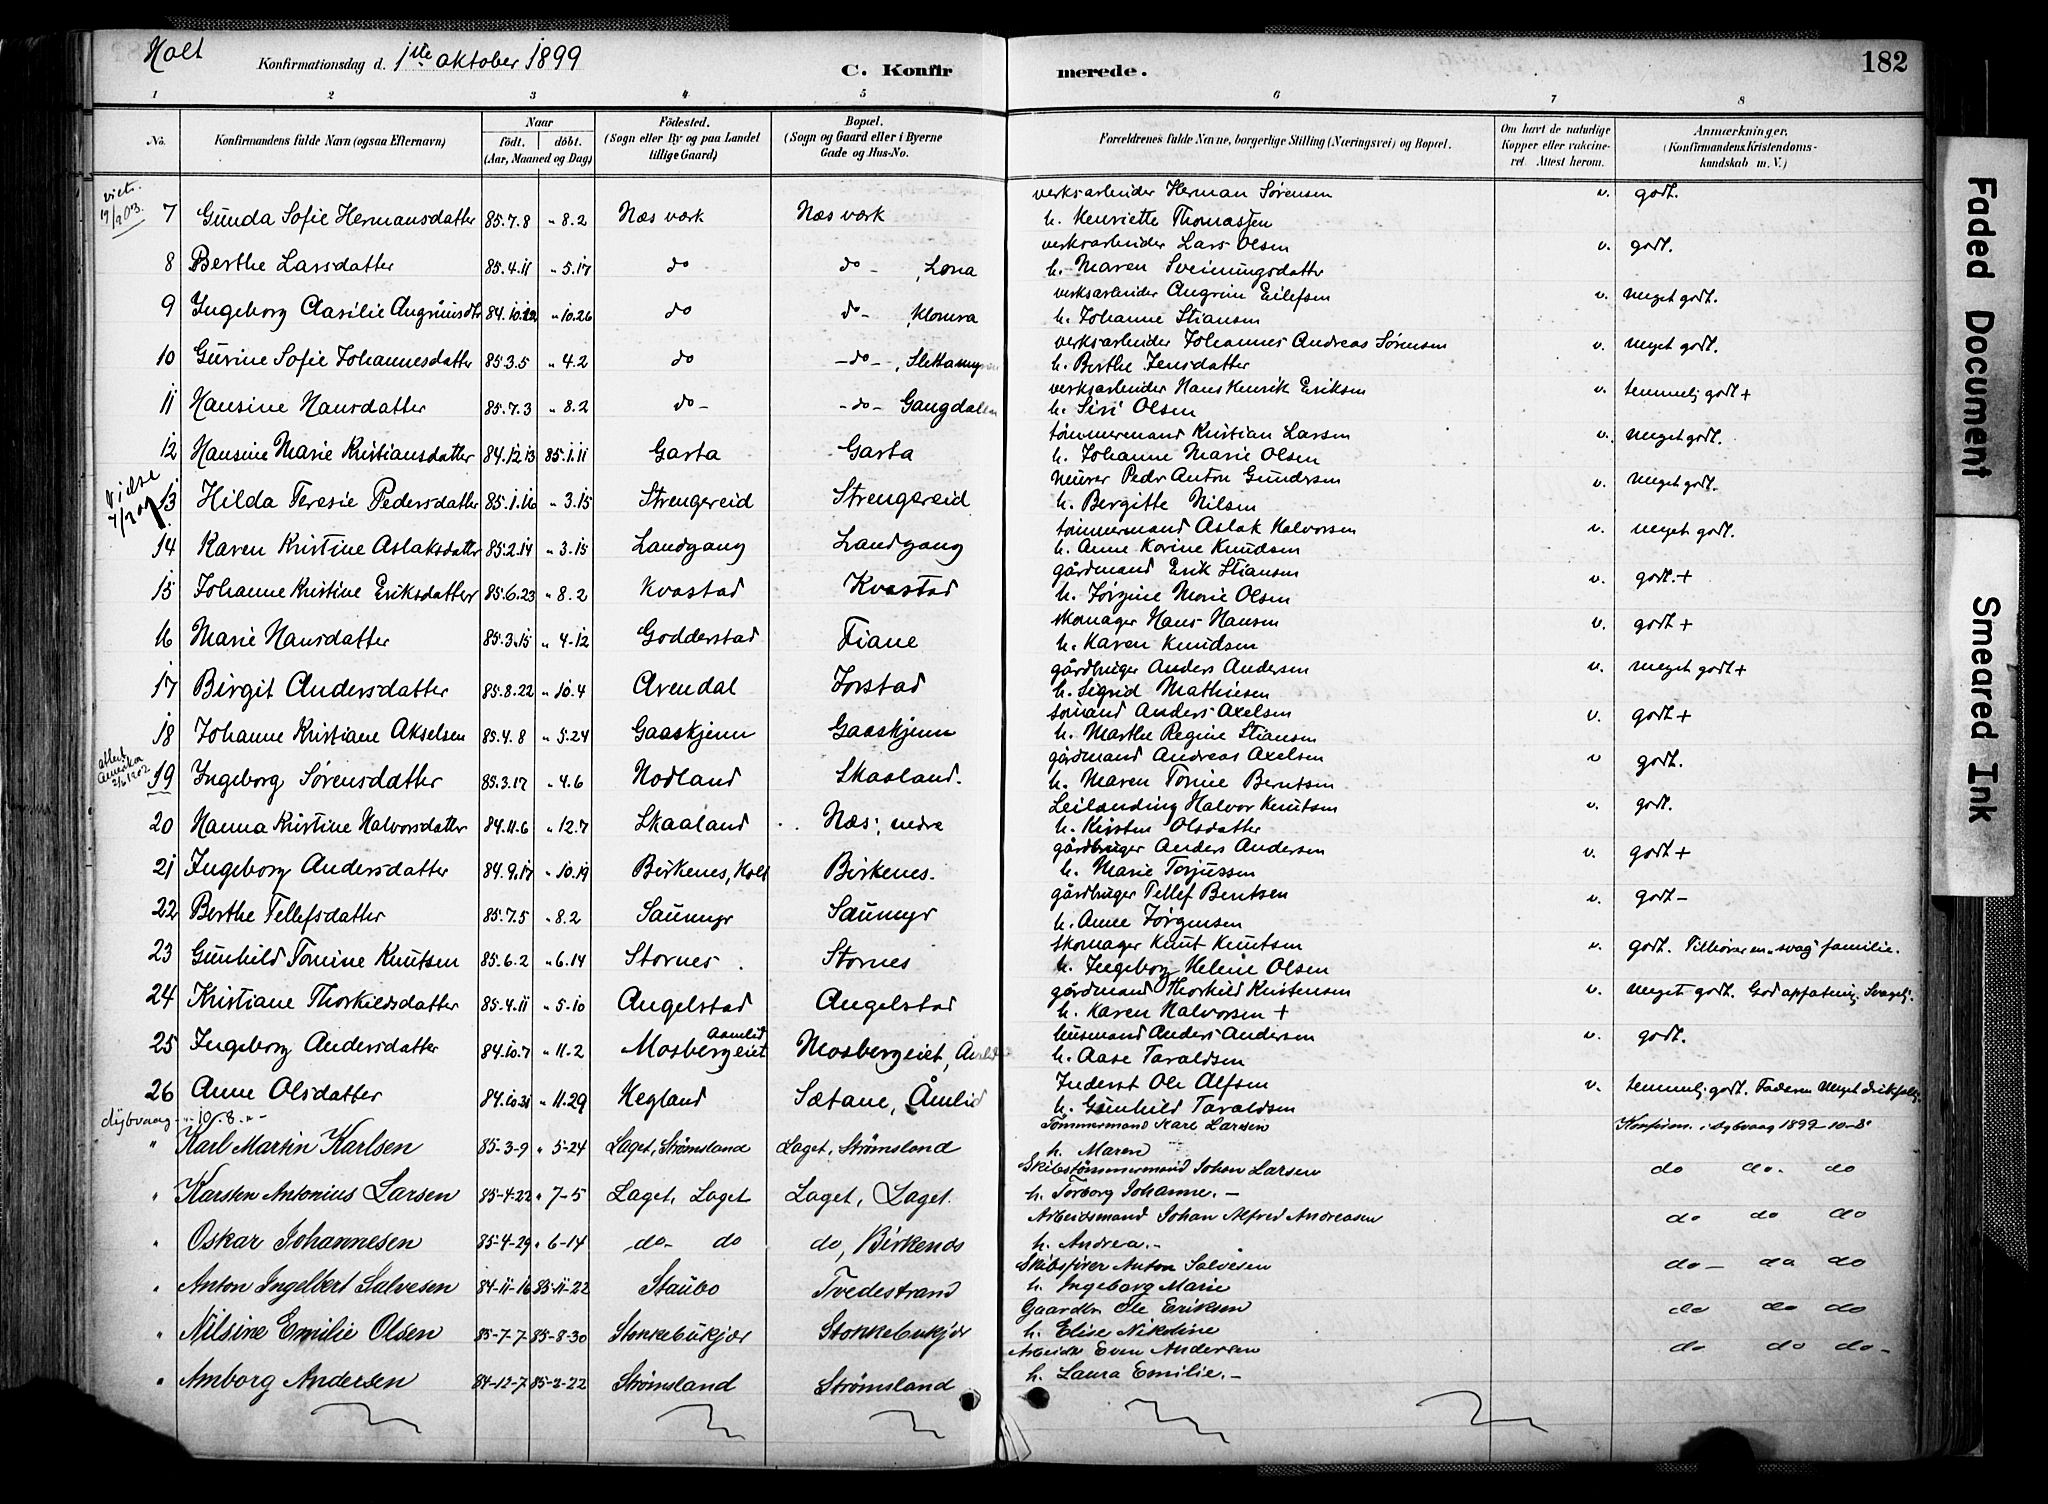 Holt Konfirmationsdag d. 1ste oktober 1899 C. Konfirmerede. 182
1 2 3 4 5 6 7 8
No. Konfirmandens fulde Navn (ogsaa Efternavn) Naar født. døbt. (Aar, Maaned og Dag) Fødested. (Sogn eller By og paa Landet tillige Gaard) Bopæl. (Sogn og Gaard eller i Byerne Gade og Hus-No. Forældrenes fulde Navne, borgerlige Stilling (Næringsvei) og Bopæl. Om havt de naturlige Kopper eller vakcineret. Attest herom. Anmærkninger. (Konfirmandens Kristendomskundskab m. V.)
verksarbeider Herman Sørensen v. godt.
7 Gunda Sofie Hermansdatter 85.7.8 " 8.2 Næs værk Næs værk h. Henriette Thomassen
verksarbeider Lars Olsen v. godt.
8 Berthe Larsdatter 85.4.11 " 5.17 do do - , Lona h. Maren Sveinungsdatter
verksarbeider Angrim Eilefsen v. meget godt.
9 Ingeborg Clasilie 84.10.12 " 10.26 do do - , Klomra h. Johanne Stiansen
verksarbeider Johannes Andreas Sørensen v. meget godt.
10 Gurine Sofie Johannesdatter 85.3.5 " 4.2 do - do - , h. Berthe Jensdatter
verksarbeider Hans Henrik Eriksen v. temmelj godt +
11 Hansine Hansdatter 85.7.3 " 8.2 do - - do - Gangdalen h. Siri Olsen
tømmermand Kristian Larsen v. meget godt.
12 Hansine Marie Kristiansdatter 84.12.13 85.1.11 Garta Garta h. Johanne Marie Olsen
murer Pedr Anton Gundersen v. meget godt.
13 Hilda Teresie Pedersdatter 85.1.16 " 3.15 Strengereid Strengereid h. Bergitte Nilsen
tømmermand Aslak Halvorsen v. meget godt.
14 Karen Kristine Aslaksdatter 85.2.14 " 3.15 Landgang Landgang h. Anne Karine Knudsen
gårdmand Erik Stiansen v. godt. +
15 Johanne Kristine Eriksdatter 85.6.23 " 8.2 Kvastad Kvastad h. Jørgine Marie Olsen
skomager Hans Hansen v. godt +
16 Marie Hansdatter 85.3.15 " 4.12 Godderstad Fiane h. Karen Knudsen
gårdbruger Anders Andersen v. meget godt +
17 Birgit Andersdatter 85.8.22 " 10.4 Arendal Jorstad h. Sigrid Mathiesen
sømand Anders Axelsen v. godt +
18 Johanne Kristiane Akselsen 85.4.8 " 5.24 Gaaskjenn Gaaskjenn h. Marthe Regine Stiansen
gårdmand Andreas Axelsen v godt.
19 Ingeborg Sørensdatter 85.3.17 " 4.6 Hodland Skaaland. h. Maren Tomine Berntsen
Leilending Halvor Knutsen v. godt.
20 Hanna Kristine Halvorsdatter 84.11.6 " 12.7 Skaaland Næs, nedre h. Kirsten Olsdatter
gårdbruger Anders Andersen v. godt +
21 Ingeborg Andersdatter 84.9.17 " 10.19 Birkenes, Holt Birkenes. h. Marie Torjussen
gårdbruger Tellef Bentsen v. godt -
22 Berthe Tellefsdatter 85.7.5 " 8.2 Saumyr Saumyr h. Anne Jørgensen
skomager Knut Knutsen v. godt. Tilhører en "svag" familie.
23 Gunhild Tomine Knutsen 85.6.2 " 6.14 Stornes Stornes h. Ingeborg Helene Olsen
gårdmand Thorkild Kristensen v. meget godt. God opfatning. Svagelj.
24 Kristiane Thorkildsdatter 85.4.11 " 5.10 Angelstad Angelstad h. Karen Halvorsen +
husmand Anders Andersen v. godt.
25 Ingeborg Andersdatter 84.10.7 " 11.2 Mosbergeiet Aamlid Mosbergeiet, h. Aase Taraldsen
Inderst Ole Alfsen v. temmelj godt. Faderen meget
26 Anne Olsdatter 84.10.31 " 11.29 Hegland Sætane, Åmlid h. Gunhild Taraldsen
dybvaag - " 10.8. " - Tømmermand Karl Larsen Konfirm. i dybvaag 1899-10-8
" Karl Martin Karlsen 85-3-9 " 5-24 Laget, Strømsland Laget, Strømsland h. Maren
Skibstømmermand Johan Larsen do do - do
" Karsten Antonius Larsen 85-4-22 " 7-5 Laget, Laget Laget, Laget. h. Torborg Johanne. -
Arbeidsmand Johan Alfred Andreasen do do do
" Oskar Johannesen 85-4-29 " 6-14 do - do do, Birkenes h. Andrea. -
Skibsfører Anton Salvesen do - do do
" Anton Ingelbert Salvesen 84-11-16 85-11-22 Staubo Tvedestrand h. Ingeborg Marie
Gaardbr. Ole Eriksen do do do
" Nilsine Emilie Olsen 85-7-7 85-8-30 Stokkebukjær Stokkebukjær h. Elise Nikoline
Arbeidr Even Andersen do do do -
" Amborg Andersen 84-12-7 85-2-22 Strømsland Strømsland h. Laura Emilie. -
Faded Document
Smeared Ink